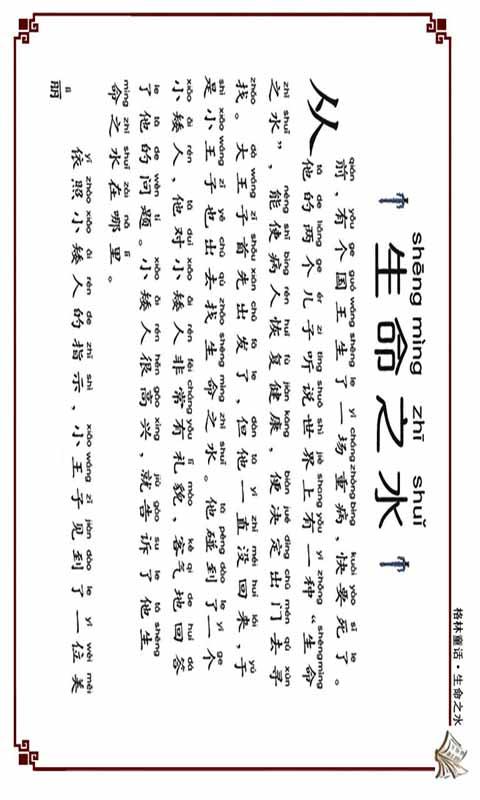 格林童话·生命之水
shēng mìng zhī shuǐ
生命之水
qián yǒu ge guó wáng shēng le yì cháng zhòng bìng kuài yào sǐ le
从前，有个国王生了一场重病，快要死了。
tā de liǎng ge ér zi tīng shuō shì jiè shang yǒu yì zhǒng shēng mìng
他的两个儿子听说世界上有一种“生命
zhī shuǐ néng shǐ bìng rén huī fù jiàn kāng biàn jué dìng chū mén qù xún
之水”，能使病人恢复健康，便决定出门去寻
zhǎo dà wáng zǐ shǒu xiān chū fā le dàn tā yì zhí méi huí lái yú
找。大王子首先出发了，但他一直没回来，于
shì xiǎo wáng zǐ yě chū qù zhǎo shēng mìng zhī shuǐ tā pèng dào le yí ge
是小王子也出去找生命之水。他碰到了一个
xiǎo ǎi rén tā duì xiǎo ǎi rén fēi cháng yǒu lǐ mào kè qi de huí dá
小矮人，他对小矮人非常有礼貌，客气地回答
le tā de wèn tí xiǎo ǎi rén hěn gāo xìng jiù gào su le tā shēng
了他的问题。小矮人很高兴，就告诉了他生
mìng zhī shuǐ zài nǎ lǐ
命之水在哪里。
yī zhào xiǎo ǎi rén de zhǐ shì xiǎo wáng zǐ jiàn dào le yí wèi měi
依照小矮人的指示，小王子见到了一位美
lì
丽